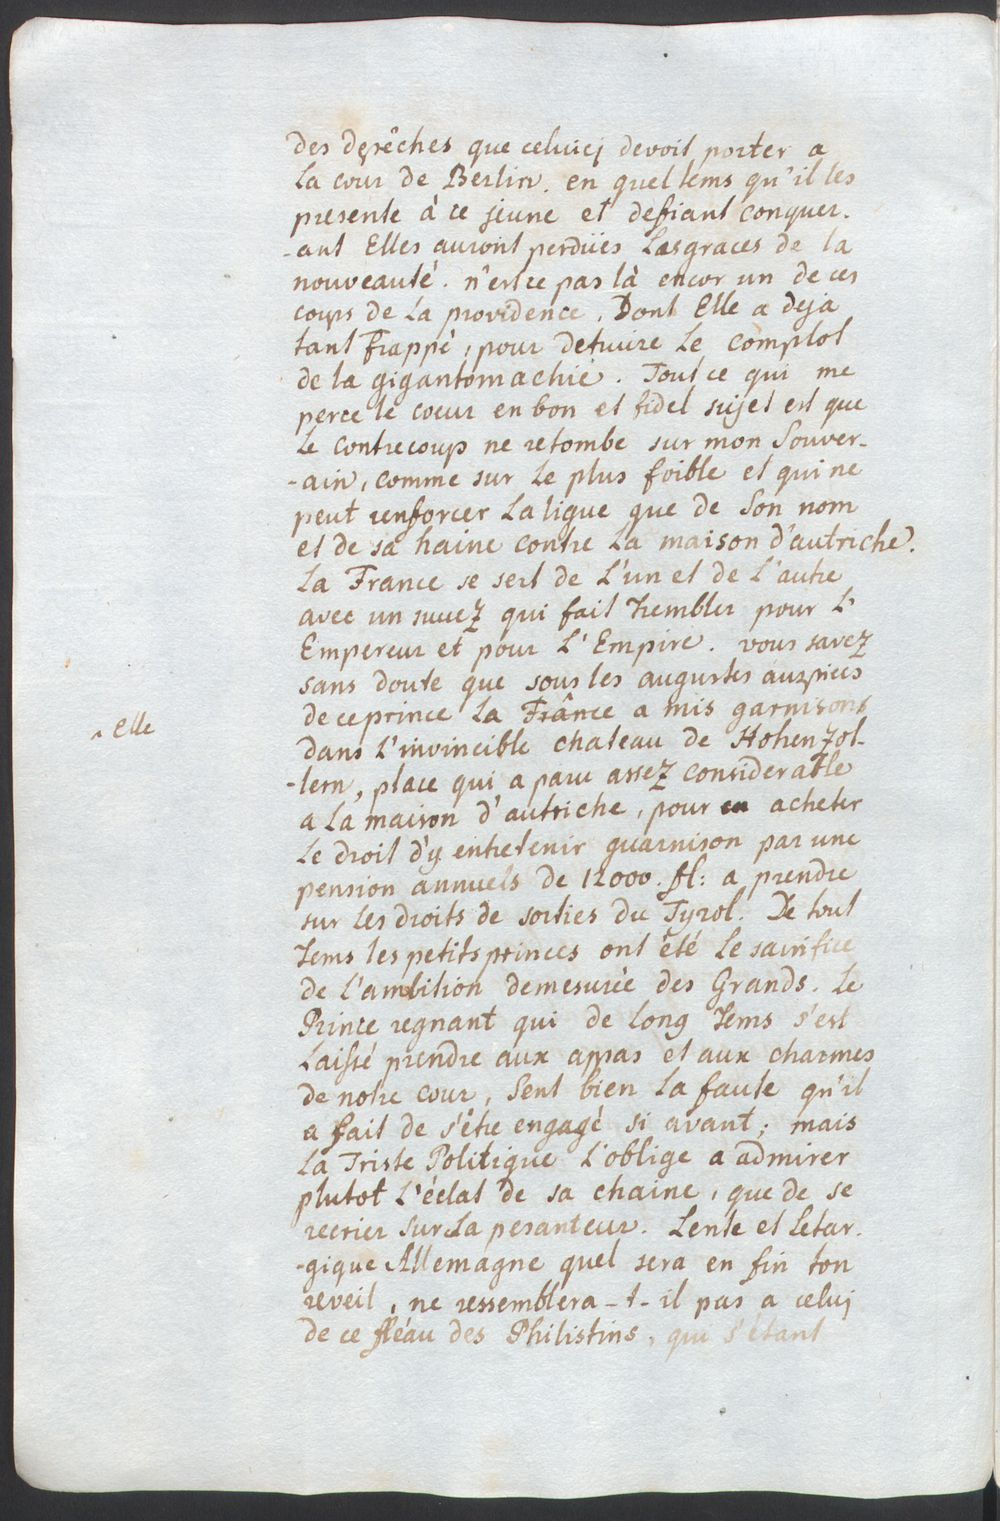 des depêches que celuicj devoit porter a
la cour de Berlin. en quel tems qu'il les
presente à ce jeune et defiant conquer-
-ant Elles auront perdües Les graces de la
nouveauté. n'estce pas là encor un de ces
coups de La providence, Dont Elle a deja
tant frappé, pour detruire Le complot
de la gigantomachie. Tout ce qui me
perce le coeur en bon et fidel sujet est que
Le Contrecoup ne retombe sur mon Souver-
-ain, comme sur Le plus foible et qui ne
peut renforcer La ligue que de Son nom
et de sa haine contre La maison d'autriche.
La France se sert de L'un et de L'autre
avec un succez qui fait trembler pour L'
Empereur et pour L'Empire. vous savez
sans doute que sous les augustes auzpices
de ce prince La Françe a mis garnisons
^ Elle
dans L'invincible chateau de Hohenzol-
-lern, place qui a paru assez considerable
a La maison d'autriche, pour en acheter
Le droit d'y entretenir guarnison par une
pension annuels de 12000. fl: a prendre
sur Les droits de sorties du Tyrol. De tout
tems les petits princes ont été Le sacrifice
de L'ambition demesurée des Grands. Le
Prince regnant qui de long tems s'est
Laissé prendre aux appas et aux charmes
de notre cour, Sent bien La faute qu'il
a fait de s'être engagé si avant; mais
La Triste Politique L'oblige a admirer
plutot L'éclat de sa chaine, que de se
recrier Sur La pesanteur. Lente et letar-
-gique Allemagne quel sera en fin ton
reveil, ne ressemblera-t-il pas a celuj
de ce fléau des Philistins, qui s'étant